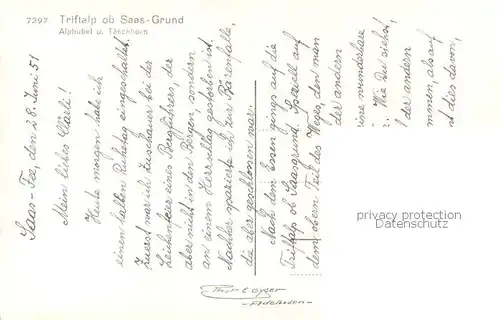 7397 Triftalp ob Saas-Grund
Alphubel u. Täschhorn
Saas-Fee, den 28. Juni 51
Mein liebes Clärli!
Heute morgen habe ich
einen halben Ruhetag eingeschaltet.
Zuerst war ich Zuschauer bei der
Leichenfeier eines Bergführers, der
aber nicht in den Bergen, sondern
an einem Herzschlag gestorben ist.
Nachher spazierte ich zur Bärenfalle,
die aber geschlossen war.
Nach dem Essen gings auf die
Triftalp ob Saasgrund. Speziell auf
dem obern Teil des Weges, den man
der andern
eine wunderbare
Wie du siehst,
der andern
men, als auf
dies davon,
privacy protection
watermark
Thyr & Gyger
-Adelboden-